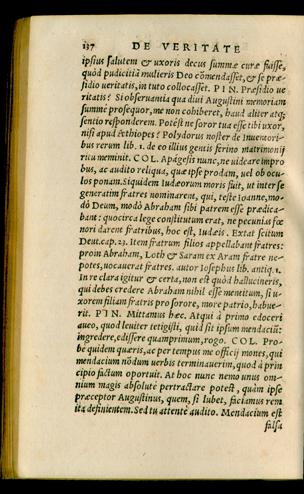 137 DE VERITATE
ipsius salutem & uxoris decus summæ curæ fuisse,
quòd pudicitiã mulieris Deo cõmendasset, & se præ-
sidio veritatis, in tuto collocasset. PIN. Præsidio ve
ritatis? Si obseruantia qua diui Augustini memoriam
summè prosequor, me non cohiberet, haud aliter atq;
sentio responderem. Potest ne soror tua esse tibi uxor,
nisi apud Æthiopes? Polydorus noster de Inuentori-
bus rerum lib. 1. de eo illius gentis ferino matrimonij
ritu meminit. COL. Apágesis nunc, ne uideare impro
bus, ac audito reliqua, quæ ipse prodam, uel ob ocu-
los ponam. Siquidem Iudæorum moris fuit, ut inter se
generatim fratres nominarent, qui, teste Ioanne, mo-
dò Deum, modò Abraham sibi patrem esse prædica-
bant: quocirca lege constitutum erat, ne pecunias fœ
nori darent fratribus, hoc est, Iudæis. Extat scitum
Deut. cap. 23. Item fratrum filios appellabant fratres:
proin Abraham, Loth & Saram ex Aram fratre ne-
potes, uocauerat fratres. autor Iosephus lib. antiq. 1.
In re clara igitur & certa, non est quòd hallucineris,
qui debes credere Abraham nihil esse mentitum, si u-
xorem filiam fratris pro sorore, more patrio, habue-
rit. PIN. Mittamus hæc. Atqui à primo edoceri
aueo, quod leuiter tetigisti, quid sit ipsum mendaciũ:
ingredere, edissere quamprimum, rogo. COL. Pro-
bè quidem quæris, ac per tempus me officij mones, qui
mendacium nõdum uerbis terminauerim, quod à prin
cipio factum oportuit. At hoc nunc nemo unus om-
nium magis absolutè pertractare potest, quàm ipse
præceptor Augustinus, quem, si lubet, faciamus rem
ita definientem. Sed tu attentè audito. Mendacium est
falsa